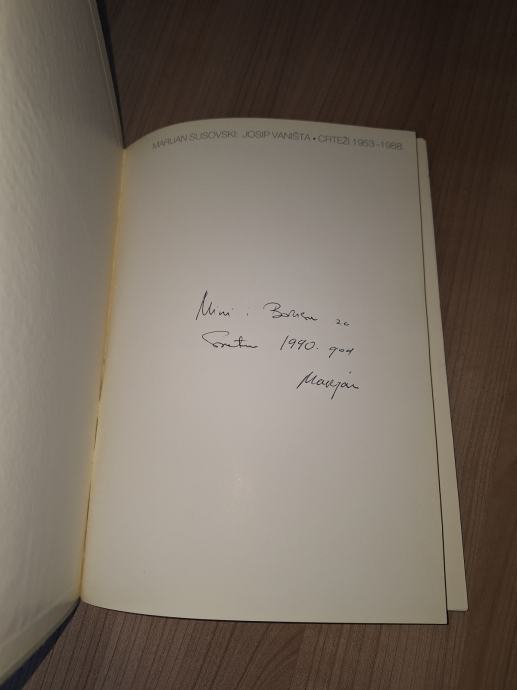 MARIJAN SUSOVSKI: JOSIP VANIŠTA • CRTEŽI 1953-1988.
Mini i za
Sretnu 1990. god
Marijan